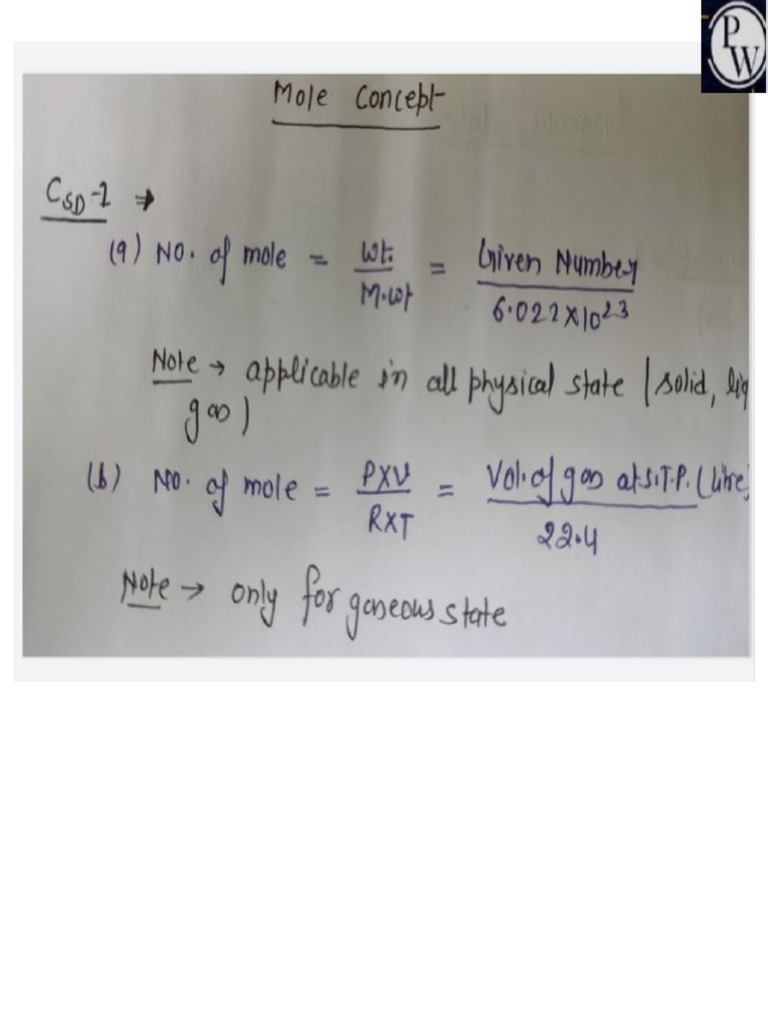 PW
Mole Concept
CSD-1 →
(a) No. of mole = wt. / M.wt = Given Number / 6.022 X 10^23
Note → applicable in all physical state (solid, liq
gas)
(b) No. of mole = PXV / RXT = Vol. of gas at S.T.P. (litre)
22.4
Note → only for gaseous state